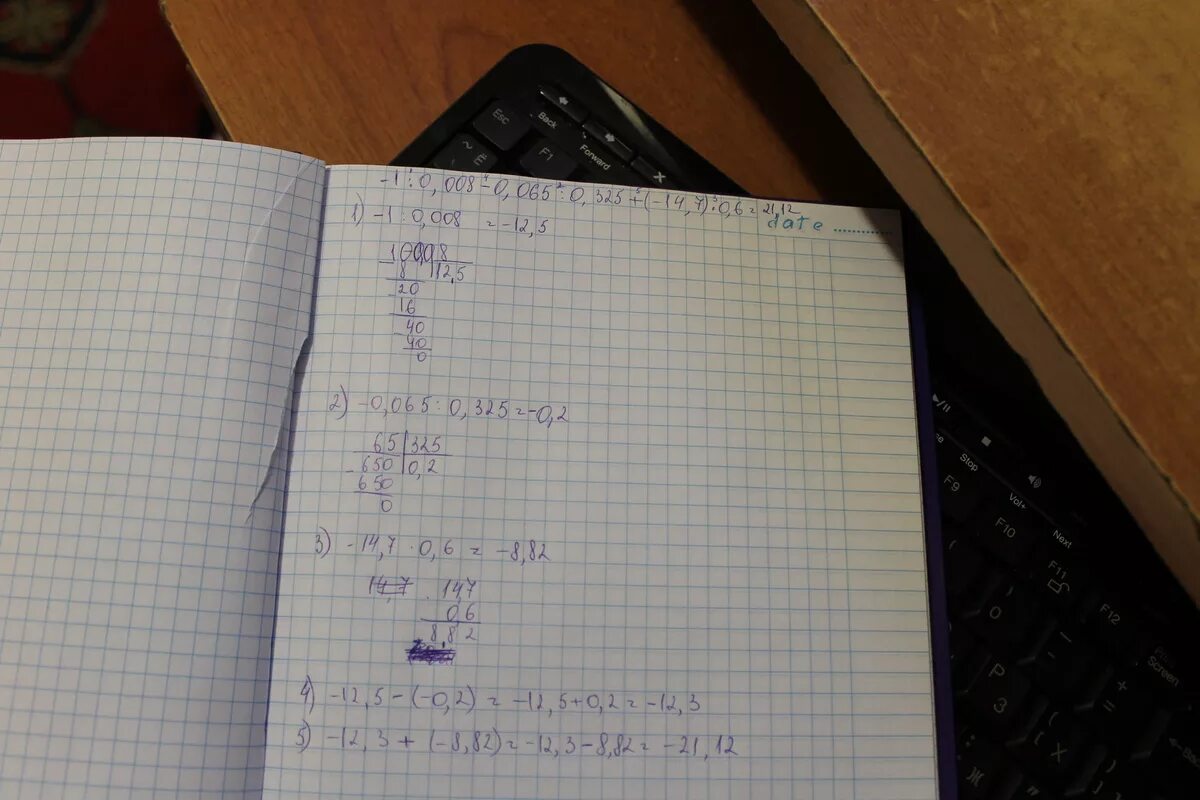 -1 : 0,008 - 0,065 : 0,325 + (-14,7) · 0,6 = 21,12
date
1) -1 : 0,008 = -12,5
10008
8 12,5
20
16
40
40
0
2) -0,065 : 0,325 = -0,2
65 325
650 0,2
650
0
3) -14,7 · 0,6 = -8,82
14,7 14,7
0 6
8,82
4) -12,5 - (-0,2) = -12,5 + 0,2 = -12,3
5) -12,3 + (-8,82) = -12,3 - 8,82 = -21,12
Esc
Back
Forward
~
Ё
F1
Stop
Vol+
Next
F9
F10
F11
F12
Screen
(
)
0
P
З
{
[
Х
+
=
:
;
Ж
Back